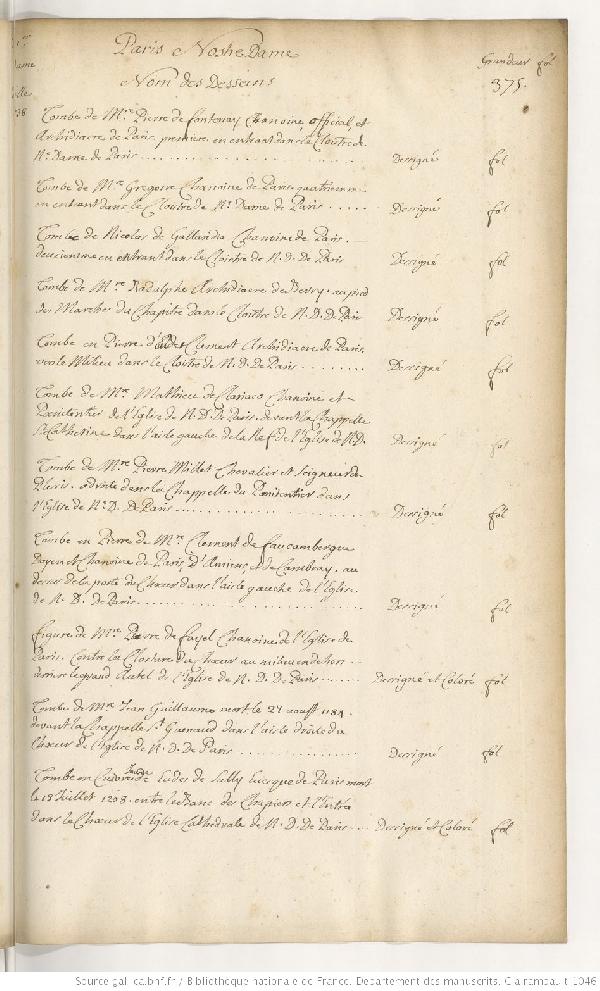 Paris Nostre Dame
Grandeur fol
Nom des Desseins
375.
Tombe de Mre. Pierre de fontenay Chanoine, official, et
Archidiacre de Paris, premiere en entrant dans le Cloitre de
N. Dame de Paris . . . . . Dessigné fol
Tombe de Mre Gregoire Chanoine de Paris quatrieme
en entrant dans le Cloitre de N. Dame de Paris . . . . . Dessigné fol
Tombe de Nicolas de Gallandia Chanoine de Paris.
deuxieme en entrant dans le Cloitre de N. D. De Paris Dessigné fol
Tombe de Mre. Radulphe Archidiacre de Berry. au pied
des Marches du Chapitre dans le Cloitre de N. D. D. Paris Dessigné fol
Tombe en Pierre Clement Archidiacre de Paris
vers le Milieu dans le Cloitre de N. D. de Paris . . . . . Dessigné fol
Tombe de Mre. Mathieu de Chanoine et
Penitentier de l'Eglise de N. D. De Paris. devant la Chappelle
Ste Catherine dans l'aisle gauche de la Nef de l'Eglise de N. D. Dessigné fol
Tombe de Mre Pierre Millet Chevalier et Seigneur de
Plessis. a droite dans la Chappelle du Penitentier dans
l'Eglise de N. D. D Paris . . . . . Dessigné fol
Tombe en Pierre de Mre Clement de faucambergue
Doyen et Chanoine de Paris D'Amiens, et de Cambray. au
dessus de la porte du Chœur dans l'aisle gauche de l'Eglise
de N. D. de Paris . . . . . Dessigné fol
figure de Mre Pierre de fayel Chanoine de l'Eglise de
Paris. Contre la Closture du Chœur au milieu en dehors
derriere le grand Autel de l'Eglise de N. D. De Paris . . . . . Dessigné et Coloré fol
Tombe de Mre Jean Guillaume mort le 27 aoust 1184
devant la Chappelle St. Gueraud dans l'aisle droite du
Chœur de l'Eglise de N. D. De Paris . . . . . Dessigné fol
Tombe en Cuivre de Eudes de Sully Evesque de Paris mort
le 13 Juillet 1208. entre le Banc des Chapiers et l'Entrée
dans le Chœur de l'Eglise Cathedrale de N. D. De Paris . . . Dessigné et Coloré fol
Source gallica.bnf.fr / Bibliothèque nationale de France. Département des manuscrits. Clairambault 1046